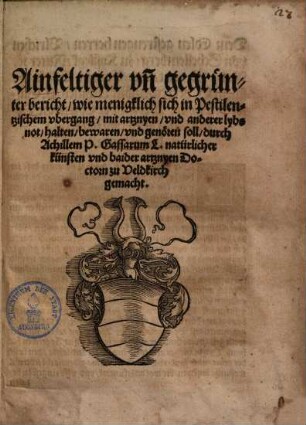 28
Ainfeltiger vn̄ gegrün-
ter bericht/ wie menigklich sich in Pestilen-
tzischem vbergang/ mit artznyen/ vnd anderer lybs
not/ halten/ bewaren/ vnd generen soll/ durch
Achillem P. Gassarum L. natürlicher
künsten vnd baider artznyen Do-
ctorn zu Veldkirch
gemacht.